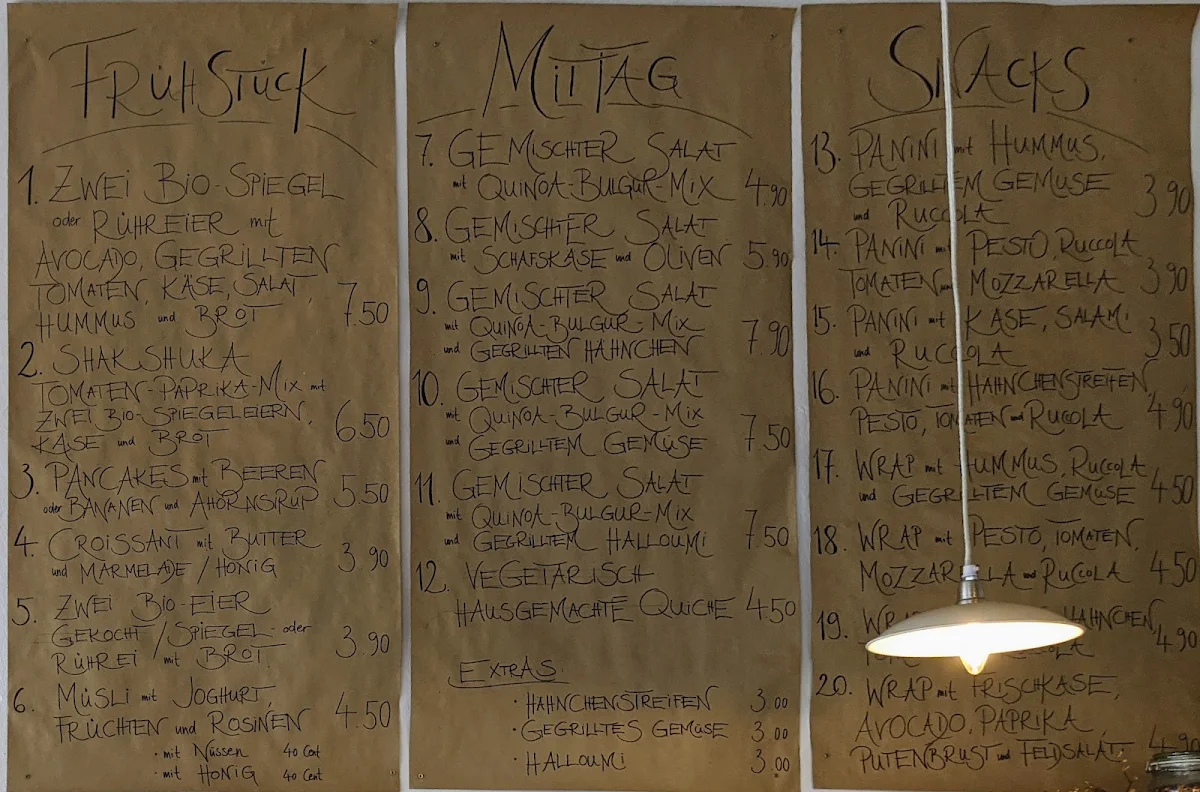 FRÜHSTÜCK
1. ZWEI BIO-SPIEGEL
oder RÜHREIER mit
AVOCADO, GEGRILLTEN
TOMATEN, KÄSE, SALAT,
HUMMUS und BROT 7.50
2. SHAKSHUKA
TOMATEN-PAPRIKA-MIX mit
ZWEI BIO-SPIEGELEIERN,
KÄSE und BROT 6.50
3. PANCAKES mit BEEREN
oder BANANEN und AHORNSIRUP 5.50
4. CROISSANT mit BUTTER
und MARMELADE / HONIG 3.90
5. ZWEI BIO-EIER
GEKOCHT/SPIEGEL- oder
RÜHREI mit BROT 3.90
6. MÜSLI mit JOGHURT,
FRÜCHTEN und ROSINEN 4.50
· mit Nüssen 40 Cent
· mit HONIG 40 Cent
MITTAG
7. GEMISCHTER SALAT
mit QUINOA-BULGUR-MIX 4.90
8. GEMISCHTER SALAT
mit SCHAFSKÄSE und OLIVEN 5.90
9. GEMISCHTER SALAT
mit QUINOA-BULGUR-MIX
und GEGRILLTEN HÄHNCHEN 7.90
10. GEMISCHTER SALAT
mit QUINOA-BULGUR-MIX
und GEGRILLTEM GEMÜSE 7.50
11. GEMISCHTER SALAT
mit QUINOA-BULGUR-MIX
und GEGRILLTEM HALLOUMI 7.50
12. VEGETARISCH
HAUSGEMACHTE QUICHE 4.50
EXTRAS
· HÄHNCHENSTREIFEN 3.00
· GEGRILLTES GEMÜSE 3.00
· HALLOUMI 3.00
SNACKS
13. PANINI mit HUMMUS,
GEGRILLTEM GEMÜSE
und RUCCOLA 3.90
14. PANINI mit PESTO, RUCCOLA
TOMATEN und MOZZARELLA 3.90
15. PANINI mit KÄSE, SALAMI
und RUCCOLA 3.50
16. PANINI mit HÄHNCHENSTREIFEN,
PESTO, TOMATEN und RUCCOLA 4.90
17. WRAP mit HUMMUS, RUCCOLA
und GEGRILLTEM GEMÜSE 4.50
18. WRAP mit PESTO, TOMATEN,
MOZZARELLA und RUCCOLA 4.50
19. HÄHNCHEN,
4.90
20. WRAP mit FRISCHKÄSE,
AVOCADO, PAPRIKA,
PUTENBRUST und FELDSALAT 4.90